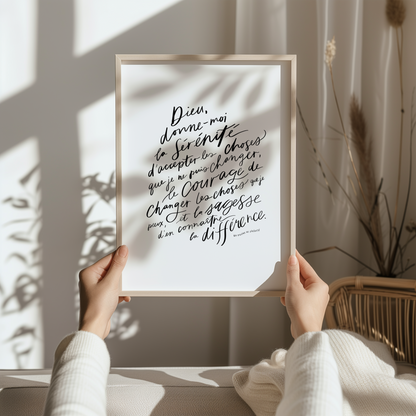 Dieu,
donne-moi
la Sérénité
d'accepter les choses
que je ne puis changer,
le Courage de
Changer les choses que je
peux, et la sagesse
d'en connaître
la différence.